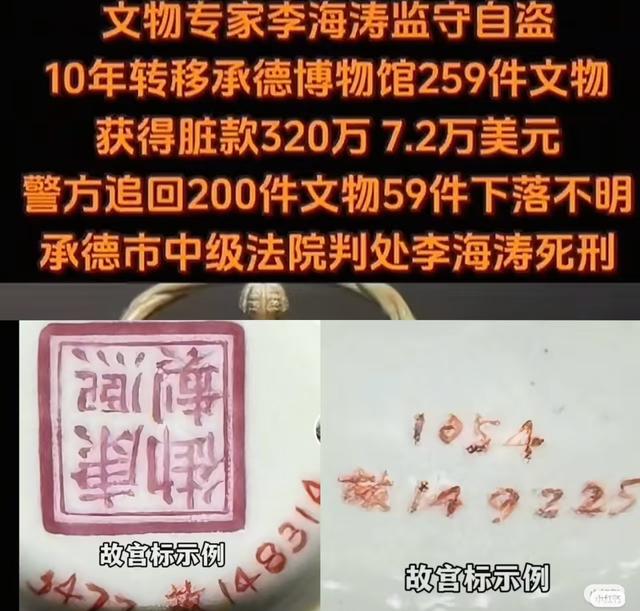 文物专家李海涛监守自盗
10年转移承德博物馆259件文物
获得脏款320万 7.2万美元
警方追回200件文物59件下落不明
承德市中级法院判处李海涛死刑
康熙
御制
3477 故 148314
故宫标示例
1054
故 149225
故宫标示例
小红书